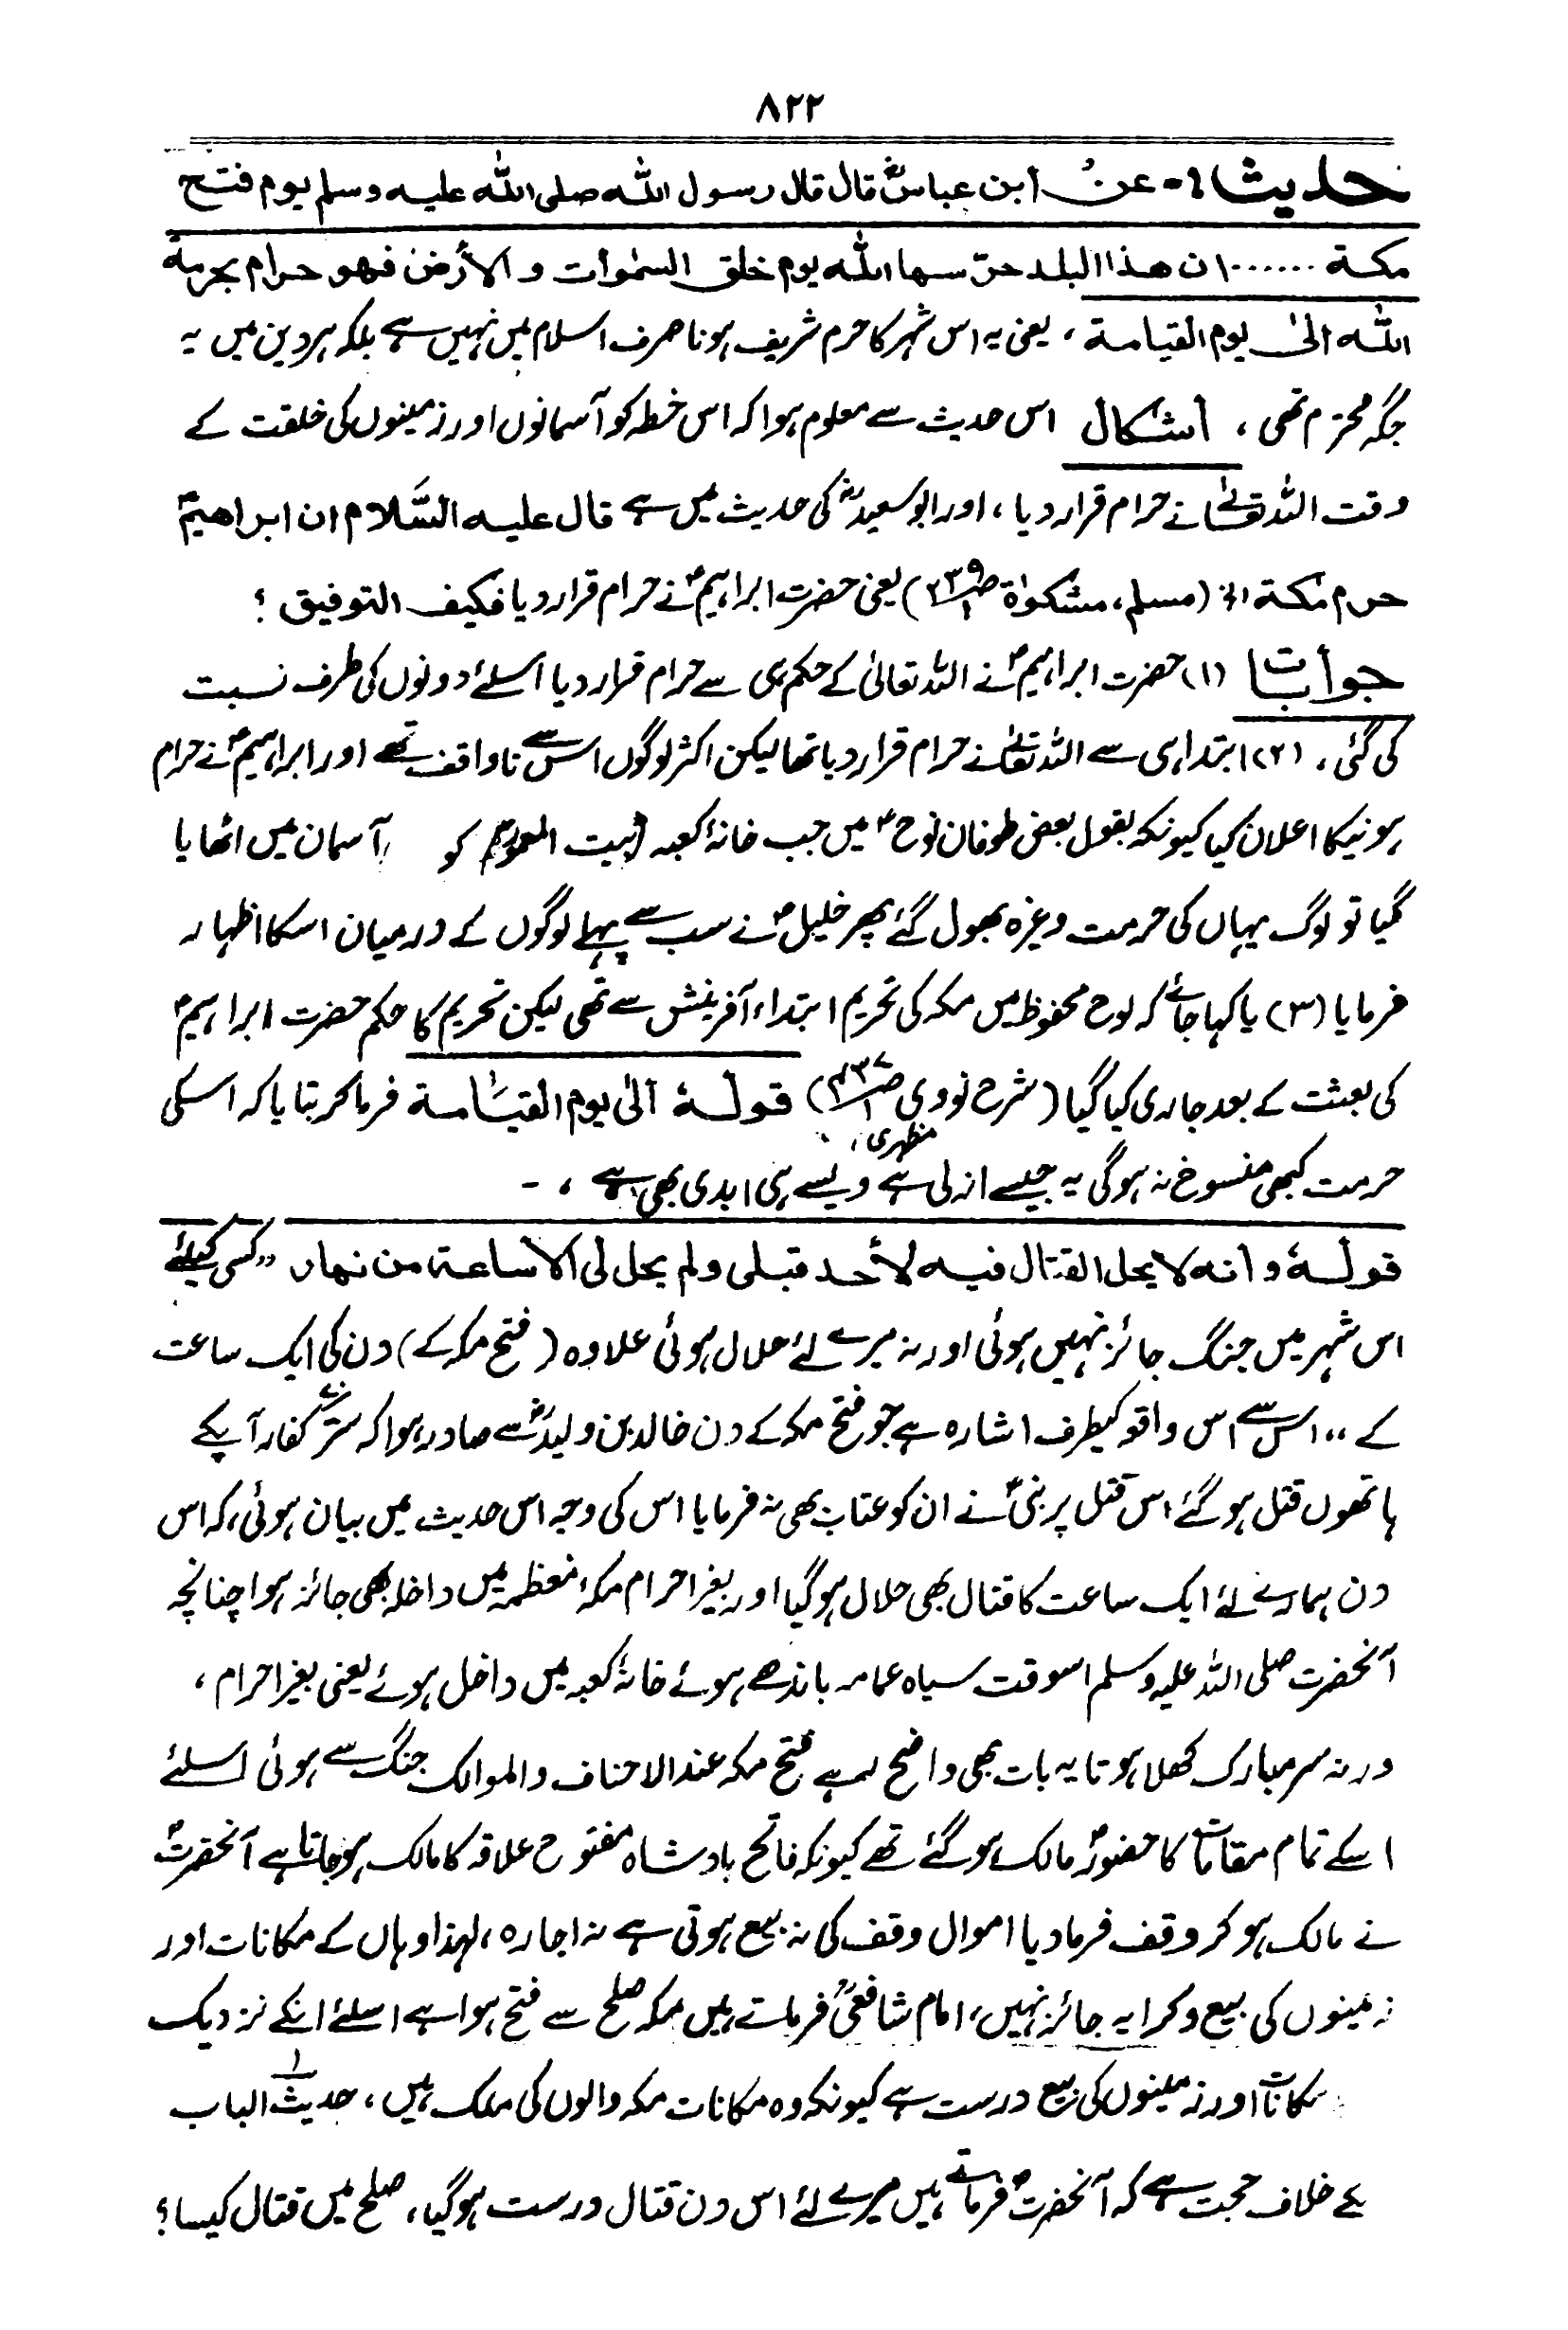 ۸۲۲
حدیث: عن ابن عباسؓ قال قال رسول اللہ صلی اللہ علیہ وسلم یوم فتح
مکة ....... ان ھذا البلد حرّمھا اللہ یوم خلق السمٰوات و الأرض فھو حرام بحرمة
اللہ الیٰ یوم القیامة ، یعنی یہ اس شہر کا حرم شریف ہونا صرف اسلام میں نہیں ہے بلکہ ہر دین میں یہ
جگہ محترم تھی ، اشکال اس حدیث سے معلوم ہوا کہ اس خطہ کو آسمانوں اور زمینوں کی خلقت کے
وقت اللہ تعالیٰ نے حرام قرار دیا ، اور ابو سعیدؓ کی حدیث میں ہے قال علیہ السَّلام ان ابراھیمؑ
حرم مکة الخ (مسلم، مشکوٰة ص۲۳۹) یعنی حضرت ابراہیمؑ نے حرام قرار دیا فکیف التوفیق ؟
جوابات (۱) حضرت ابراہیمؑ نے اللہ تعالیٰ کے حکم ہی سے حرام قرار دیا اسلئے دونوں کی طرف نسبت
کی گئی ، (۲) ابتدا ہی سے اللہ تعالیٰ نے حرام قرار دیا تھا لیکن اکثر لوگوں اس سے ناواقف تھے اور ابراہیمؑ نے حرام
ہونیکا اعلان کیا کیونکہ بقول بعض طوفان نوحؑ میں جب خانۂ کعبہ (بیت المعمور) کو آسمان میں اٹھایا
گیا تو لوگ یہاں کی حرمت وغیرہ بھول گئے پھر خلیلؑ نے سب سے پہلے لوگوں کے درمیان اسکا اظہار
فرمایا (۳) یا کہا جائے کہ لوح محفوظ میں مکہ کی تحریم ابتداء آفرینش سے تھی لیکن تحریم کا حکم حضرت ابراہیمؑ
کی بعثت کے بعد جاری کیا گیا (شرح نووی ص۴۳۷) قولہٗ الیٰ یوم القیَامة فرماکر بتایا کہ اسکی
مظہری،
حرمت کبھی منسوخ نہ ہوگی یہ جیسے ازلی ہے ویسے ہی ابدی بھی ہے ، -
قولہٗ و انہ لا یحل القتال فیہ لأحد قبلی و لم یحل لی الا ساعة من نہار ،،کسی کیلئے
اس شہر میں جنگ جائز نہیں ہوئی اور نہ میرے لئے حلال ہوئی علاوہ (فتح مکہ کے) دن کی ایک ساعت
کے ،، اس سے اس واقعہ کیطرف اشارہ ہے جو فتح مکہ کے دن خالد بن ولیدؓ سے صادر ہوا کہ ستر۷۰ کفار آپکے
ہاتھوں قتل ہوگئے اس قتل پر نبیؐ نے ان کو عتاب بھی نہ فرمایا اس کی وجہ اس حدیث میں بیان ہوئی، کہ اس
دن ہمارے لئے ایک ساعت کا قتال بھی حلال ہوگیا اور بغیر احرام مکۂ معظمہ میں داخلہ بھی جائز ہوا چنانچہ
آنحضرت صلی اللہ علیہ وسلم اسوقت سیاہ عمامہ باندھے ہوئے خانۂ کعبہ میں داخل ہوئے یعنی بغیر احرام ،
ورنہ سر مبارک کھلا ہوتا یہ بات بھی واضح رہے فتح مکہ عند الاحناف والموالک جنگ سے ہوئی اسلئے
اسکے تمام مقامات کا حضورؐ مالک ہوگئے تھے کیونکہ فاتح بادشاہ مفتوح علاقہ کا مالک ہوجاتا ہے آنحضرتؐ
نے مالک ہوکر وقف فرمادیا اموال وقف کی نہ بیع ہوتی ہے نہ اجارہ ، لہذا وہاں کے مکانات اور
زمینوں کی بیع و کرایہ جائز نہیں، امام شافعیؒ فرماتے ہیں مکہ صلح سے فتح ہوا ہے اسلئے انکے نزدیک
مکانات اور زمینوں کی بیع درست ہے کیونکہ وہ مکانات مکہ والوں کی ملک ہیں ، حدیث الباب
کے خلاف حجت ہے کہ آنحضرتؐ فرماتے ہیں میرے لئے اس دن قتال درست ہوگیا، صلح میں قتال کیسا؟